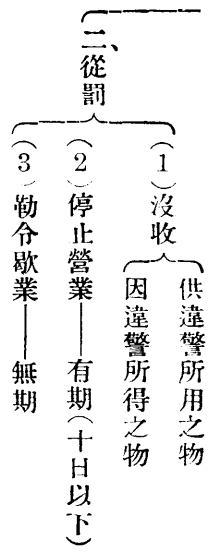 二、從罰
(1)沒收
供違警所用之物
因違警所得之物
(2)停止營業——有期(十日以下)
(3)勒令歇業——無期